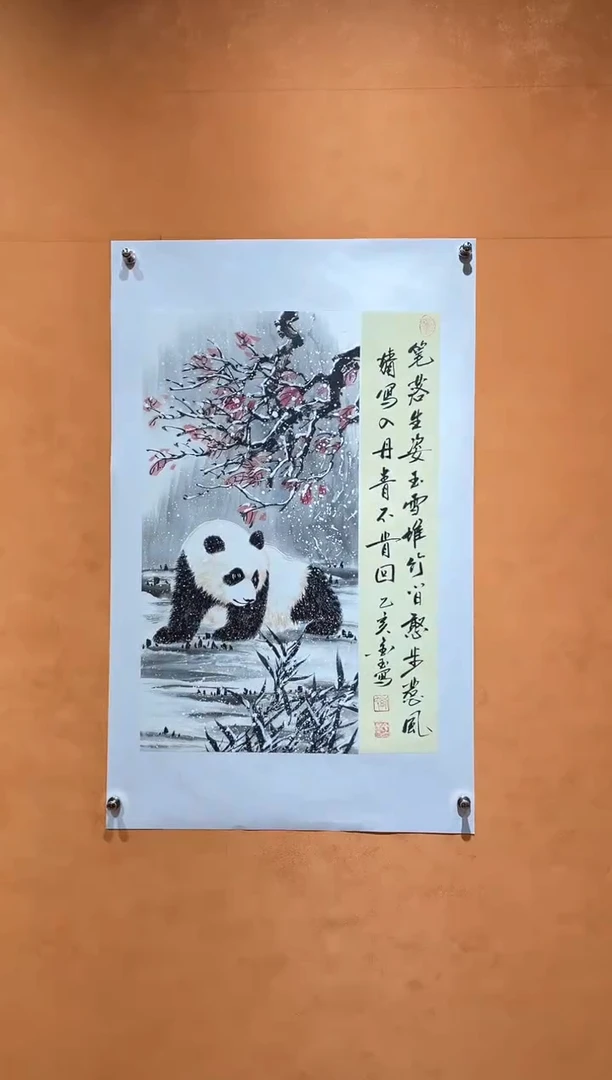 笔落生姿玉雪堆竹间憨步惹風
写入丹青不肯回 乙亥 玉写